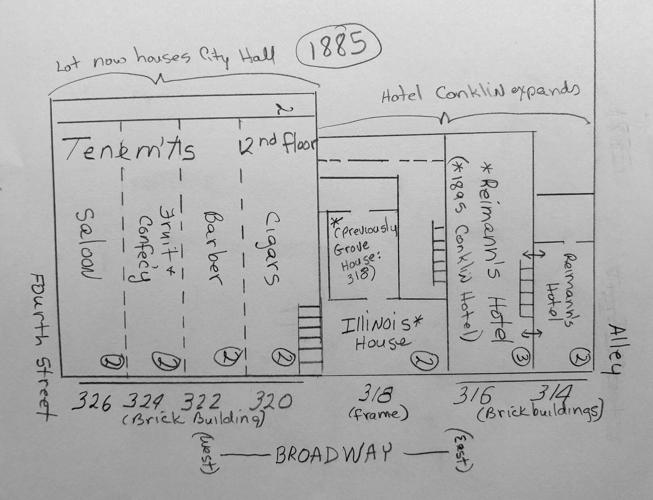 Lot now houses City Hall
1885
Hotel Conklin expands
2
Tenem'ts 2nd floor
Saloon
Fruit +
Confec'y
Barber
Cigars
*(Previously
Grove
House:
318)
Illinois*
House
*Reimann's Hotel
(*1895 Conklin Hotel)
Reimann's
Hotel
2
2
2
2
2
3
2
Fourth Street
Alley
326 324 322 320 318 316 314
(Brick Building) (frame) (Brick buildings)
(West) BROADWAY (East)